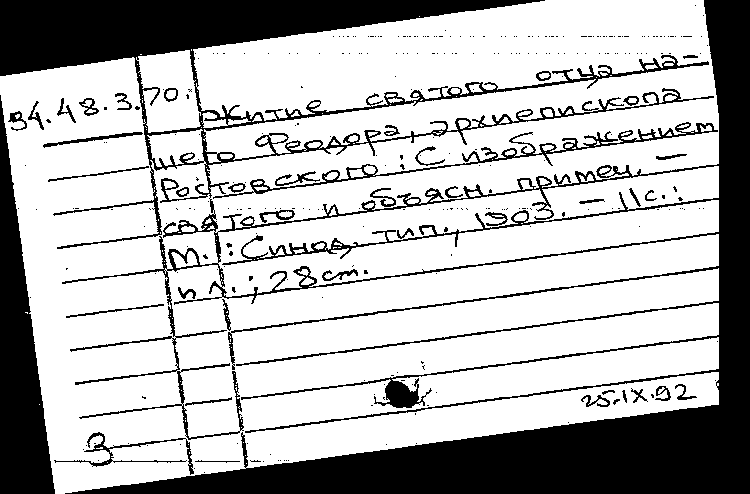 34.48.3.70. Житие святого отца на-
шего Феодора, архиепископа
Ростовского : С изображением
святого и объясн. примеч. —
М. : Синод. тип., 1903. — 11 с. :
ил. ; 28 cm.
25.IX.92
3